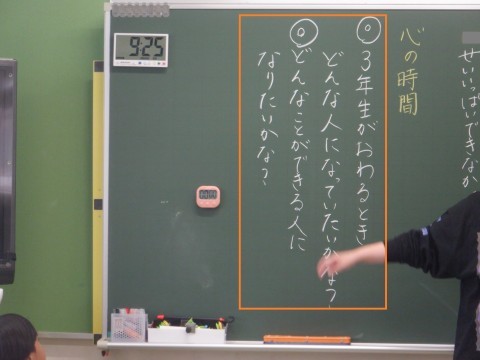 せいいっぱいできなか
心の時間
◎3年生がおわるとき
どんな人になっていたいかな?
◎どんなことができる人に
なりたいかな?
9:25